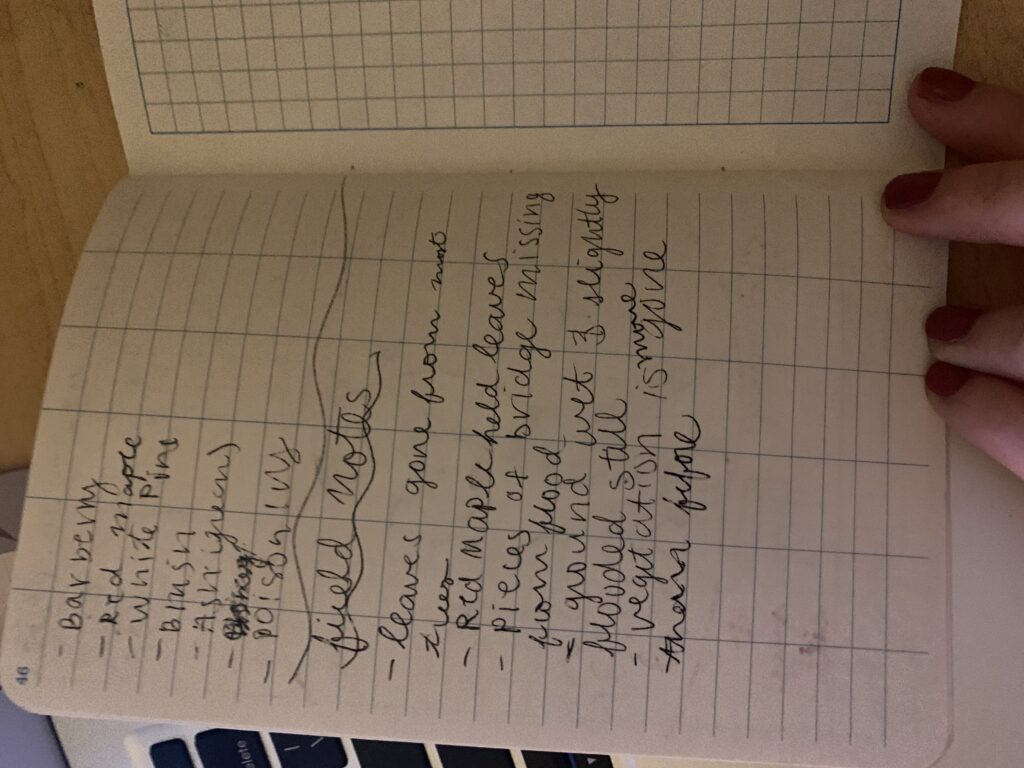 46
- Barberry
- Red maple
- White Pine
- Blush
- Ash (green)
-
- poison ivy
field notes
- leaves gone from most
trees
- Red maple held leaves
- pieces of bridge missing
from flood
- ground wet & slightly
flooded still
- vegitation is more gone
than before
lete